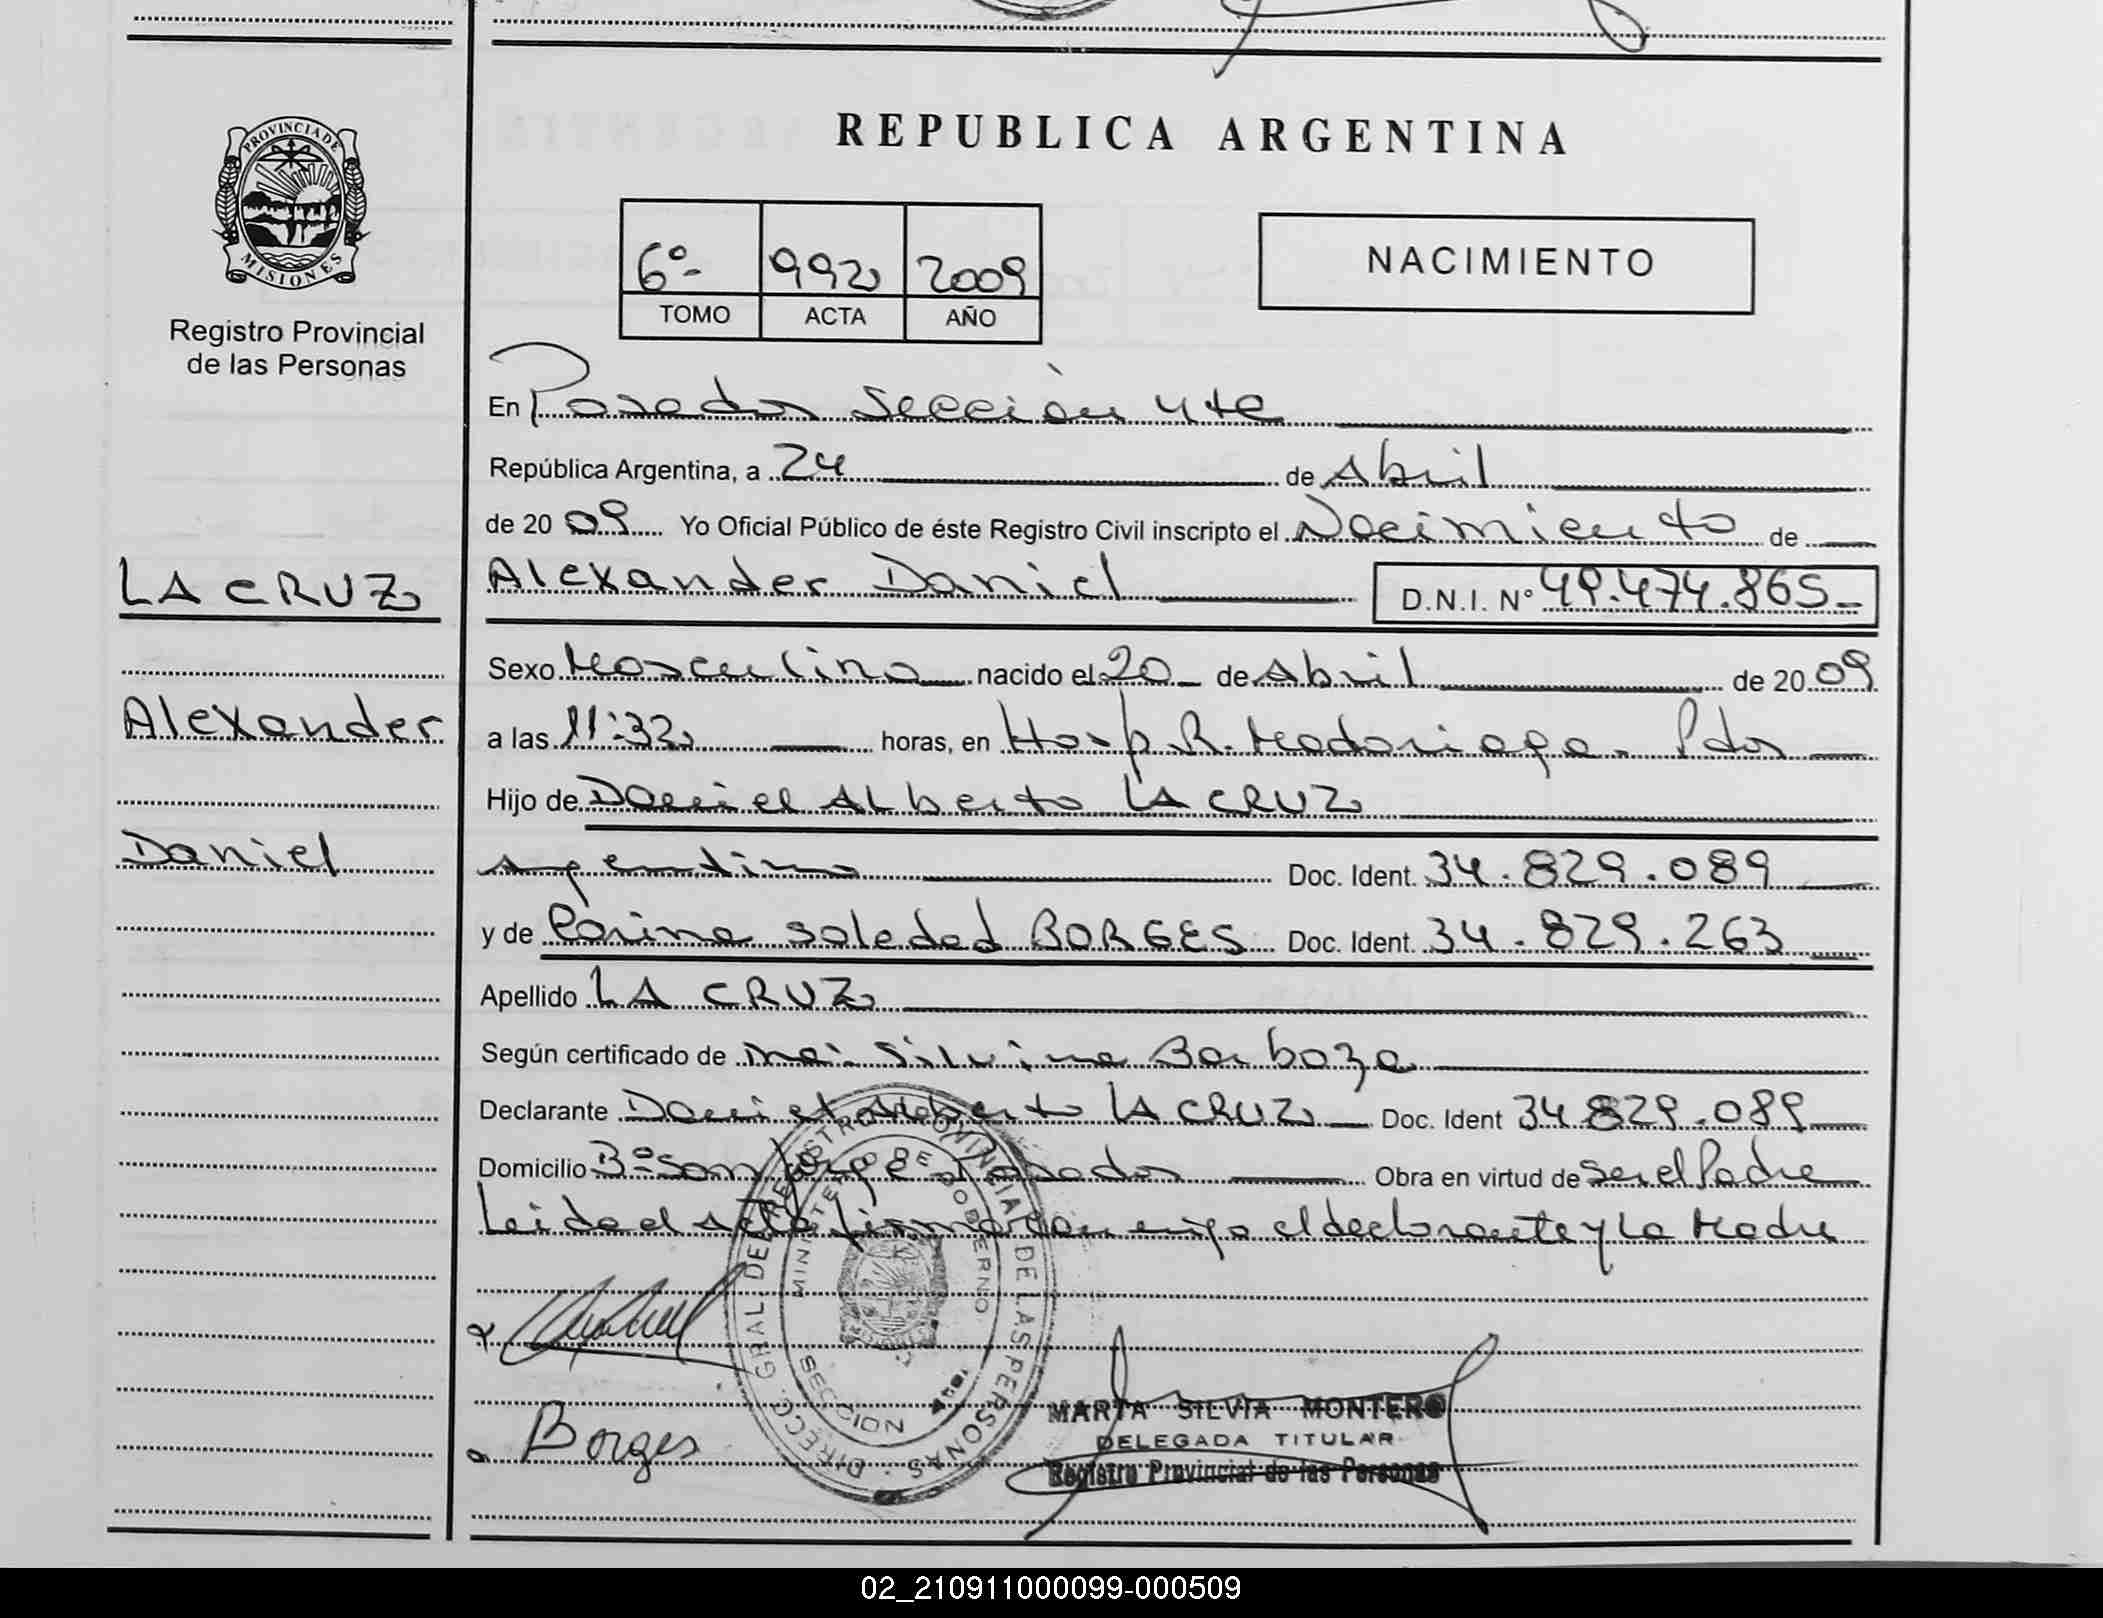 PROVINCIA DE
MISIONES
Registro Provincial
de las Personas
LA CRUZ
Alexander
Daniel
REPUBLICA ARGENTINA
6º- 992 2009
TOMO ACTA AÑO
NACIMIENTO
En Posadas Sección 4ta
República Argentina, a 24 de Abril
de 2009 Yo Oficial Público de éste Registro Civil inscripto el Nacimiento de
Alexander Daniel D.N.I. Nº 49.474.865-
Sexo Masculino nacido el 20 de Abril de 2009
a las 11:32 horas, en Hosp. R. Madariaga. Pdas
Hijo de Daniel Alberto LA CRUZ
argentino Doc. Ident. 34.829.089
y de Carina Soledad BORGES Doc. Ident. 34.829.263
Apellido LA CRUZ
Según certificado de Silvina Barboza
Declarante Daniel Alberto LA CRUZ Doc. Ident 34.829.089
Domicilio Bº San Jorge Posadas Obra en virtud de Ser el Padre
Leida el acta firman conmigo el declarante y la Madre
DIRECC. GRAL. DEL REGISTRO PROVINCIAL DE LAS PERSONAS
MINISTERIO DE GOBIERNO
SECCION 4ta.
Borges
MARTA SILVIA MONTERO
DELEGADA TITULAR
Registro Provincial de las Personas
02_210911000099-000509